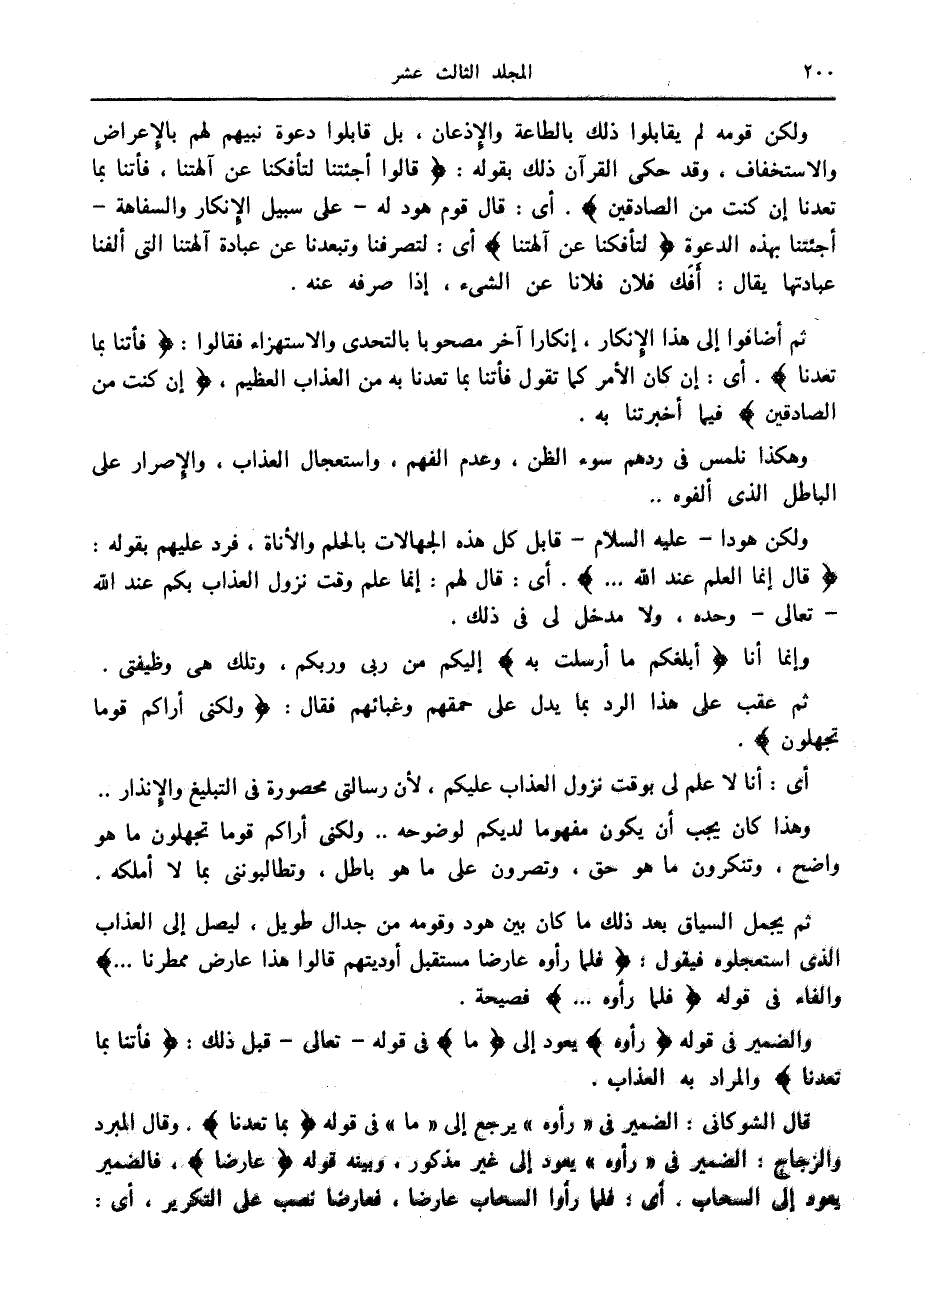 ٢٠٠ المجلد الثالث عشر
ولكن قومه لم يقابلوا ذلك بالطاعة والإذعان ، بل قابلوا دعوة نبيهم لهم بالإعراض
والاستخفاف ، وقد حكى القرآن ذلك بقوله : ﴿ قالوا أجئتنا لتأفكنا عن آلهتنا ، فأتنا بما
تعدنا إن كنت من الصادقين ﴾ . أى : قال قوم هود له – على سبيل الإنكار والسفاهة –
أجئتنا بهذه الدعوة ﴿ لتأفكنا عن آلهتنا ﴾ أى : لتصرفنا وتبعدنا عن عبادة آلهتنا التى ألفنا
عبادتها يقال : أَفَك فلان فلانا عن الشىء ، إذا صرفه عنه .
ثم أضافوا إلى هذا الإنكار ، إنكارا آخر مصحوبا بالتحدى والاستهزاء فقالوا : ﴿ فأتنا بما
تعدنا ﴾ . أى : إن كان الأمر كما تقول فأتنا بما تعدنا به من العذاب العظيم ، ﴿ إن كنت من
الصادقين ﴾ فيما أخبرتنا به .
وهكذا نلمس فى ردهم سوء الظن ، وعدم الفهم ، واستعجال العذاب ، والإصرار على
الباطل الذى ألفوه ..
ولكن هودا – عليه السلام – قابل كل هذه الجهالات بالحلم والأناة ، فرد عليهم بقوله :
﴿ قال إنما العلم عند الله ... ﴾ . أى : قال لهم : إنما علم وقت نزول العذاب بكم عند الله
– تعالى – وحده ، ولا مدخل لى فى ذلك .
وإنما أنا ﴿ أبلغكم ما أرسلت به ﴾ إليكم من ربى وربكم ، وتلك هى وظيفتى .
ثم عقب على هذا الرد بما يدل على حمقهم وغبائهم فقال : ﴿ ولكنى أراكم قوما
تجهلون ﴾ .
أى : أنا لا علم لى بوقت نزول العذاب عليكم ، لأن رسالتى محصورة فى التبليغ والإنذار ..
وهذا كان يجب أن يكون مفهوما لديكم لوضوحه .. ولكنى أراكم قوما تجهلون ما هو
واضح ، وتنكرون ما هو حق ، وتصرون على ما هو باطل ، وتطالبوننى بما لا أملكه .
ثم يجمل السياق بعد ذلك ما كان بين هود وقومه من جدال طويل ، ليصل إلى العذاب
الذى استعجلوه فيقول : ﴿ فلما رأوه عارضا مستقبل أوديتهم قالوا هذا عارض ممطرنا ...﴾
والفاء فى قوله ﴿ فلما رأوه ... ﴾ فصيحة .
والضمير فى قوله ﴿ رأوه ﴾ يعود إلى ﴿ ما ﴾ فى قوله – تعالى – قبل ذلك : ﴿ فأتنا بما
تعدنا ﴾ والمراد به العذاب .
قال الشوكانى : الضمير فى « رأوه » يرجع إلى « ما » فى قوله ﴿ بما تعدنا ﴾ . وقال المبرد
والزجاج : الضمير فى « رأوه » يعود إلى غير مذكور ، وبينه قوله ﴿ عارضا ﴾ ، فالضمير
يعود إلى السحاب . أى : فلما رأوا السحاب عارضا ، فعارضا نصب على التكرير ، أى :